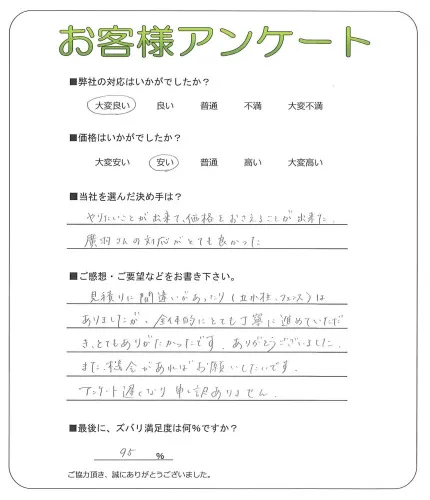 お客様アンケート
■弊社の対応はいかがでしたか？
大変良い 良い 普通 不満 大変不満
■価格はいかがでしたか？
大変安い 安い 普通 高い 大変高い
■当社を選んだ決め手は？
やりたいことが出来て、価格をおさえることが出来た。
廣羽さんの対応がとても良かった
■ご感想・ご要望などをお書き下さい。
見積りに間違いがあったり(立水栓、フェンス)は
ありましたが、全体的にとても丁寧に進めていただ
き、とてもありがたかったです。ありがとうございました。
また機会があればお願いしたいです。
アンケート遅くなり申し訳ありません。
■最後に、ズバリ満足度は何％ですか？
95 ％
ご協力頂き、誠にありがとうございました。